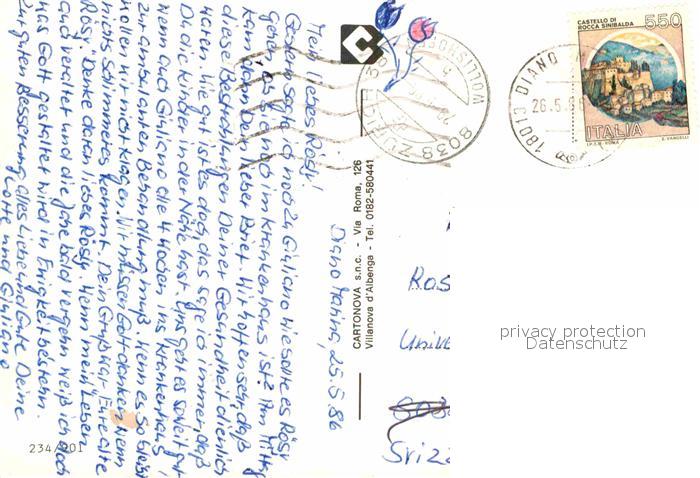 Diano Marina, 25.5.86
Mein liebes Rösly!
Gestern sagte ich noch zu Giuliano wie sollte es Rösy
gehn, ob sie noch im Krankenhaus ist? Am Mittag
kam dann Dein lieber Brief. Wir hoffen sehr, daß
diese Bestrahlungen Deiner Gesundheit dienlich
waren. Wie gut ist es doch, das sag ich immer, daß
Du die Kinder in der Nähe hast. Uns geht es soweit gut
wenn auch Giuliano alle 4 Wochen ins Krankenhaus
zur ambulanten Behandlung muß. Wenn es so bleibt
wollen wir nicht klagen. Wir müssen Gott danken, wenn
nichts schlimmeres kommt. Dein Gruß war
Rösy. Denke daran liebes Rösly. Wenn mein Leben
auch veraltet und die Jahre bald vergehn weiß ich doch
was Gott gestaltet wird in Ewigkeit bestehn.
Zur guten Besserung alles Liebe und Gute Deine
Lotte und Giuliano
234/201
CARTONOVA s.n.c. - Via Roma, 126
Villanova d'Albenga - Tel. 0182-580441
8038 ZÜRICH 38
WOLLISHOFEN
18013 DIANO
26.5.86
CASTELLO DI
ROCCA SINIBALDA
550
ITALIA
I.P.S. ROMA
E. VANGELLI
Ros
Unive
803
Svizz
privacy protection
Datenschutz